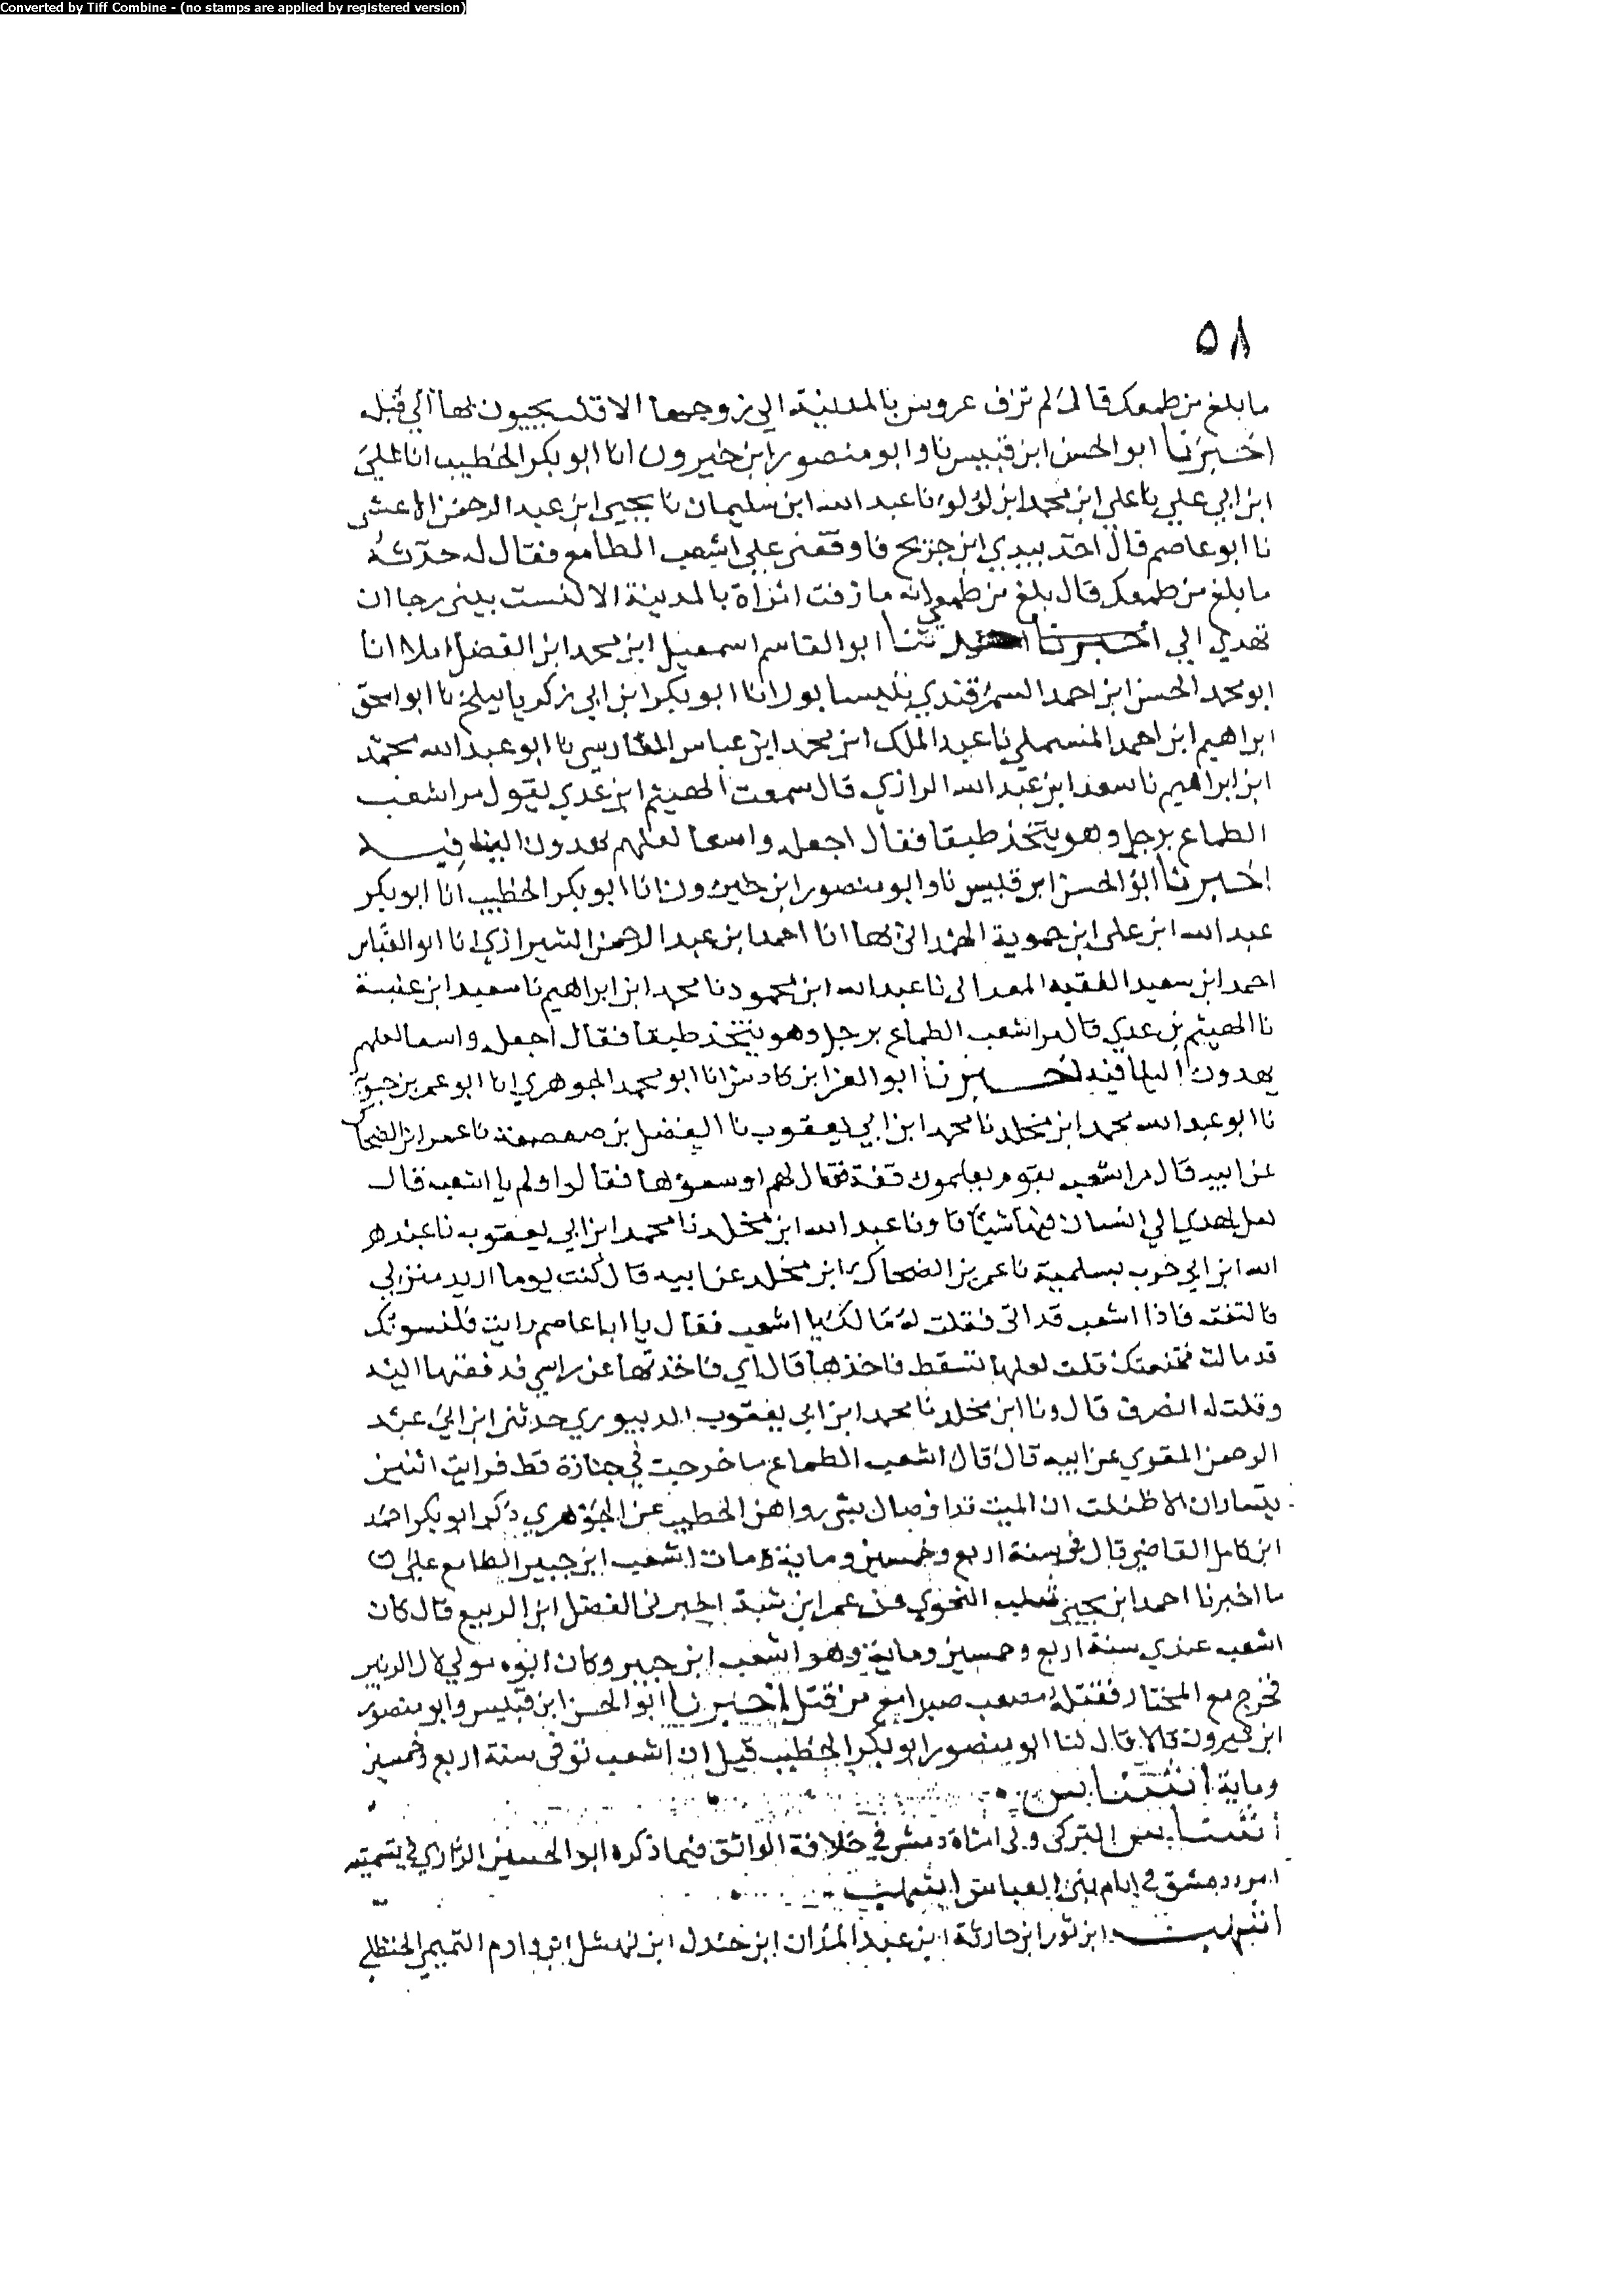 Converted by Tiff Combine - (no stamps are applied by registered version)
٥٨
ما بلغ من طمعك قال لم تزف عروس بالمدينة الى زوجها الا قلت يجيبون بها الي قبله
اخبرنا ابو الحسن ابن قبيس نا وابو منصور ابن خيرون انا ابو بكر الخطيب انا علي
ابن ابي علي نا علي ابن محمد ابن لولو نا عبد الله ابن سليمان نا يحيى ابن عبد الرحمن الاعشى
نا ابو عاصم قال اخذ بيدي ابن جريج فاوقفني علي اشعب الطامع فقال له حدثه
ما بلغ من طمعك قال بلغ من طمعي انه ما زفت امراة بالمدينة الا كنست بيتي رجا ان
تهدي الي ثنا ابو القاسم اسمعيل ابن محمد ابن الفضل املا انا
ابو محمد الحسن ابن احمد السمرقندي بنيسابور انا ابو بكر ابن ابي زكريا ببلخ نا ابو اسحق
ابراهيم ابن احمد المستملي نا عبد الملك ابن محمد ابن عباس الفارسي نا ابو عبد الله محمد
ابن ابراهيم نا سعد ابن عبد الله الرازي قال سمعت الهيثم ابن عدي يقول مر اشعب
الطماع برجل وهو يتخذ طبقا فقال اجعله واسعا لعلهم يهدون الينا فيه
اخبرنا ابو الحسن ابن قبيس نا وابو منصور ابن خيرون انا ابو بكر الخطيب انا ابو بكر
عبد الله ابن علي ابن حموية الهمداني بها انا احمد ابن عبد الرحمن الشيرازي انا ابو العباس
احمد ابن سعيد الفقيه المعداني نا عبد الله ابن محمود نا محمد ابن ابراهيم نا سعيد ابن عنبسة
نا الهيثم بن عدي قال مر اشعب الطماع برجل وهو يتخذ طبقا فقال اجعله واسعا لعلهم
يهدون الينا فيه اخبرنا ابو العز ابن كادش انا ابو محمد الجوهري انا ابو عمر بن حيوية
نا ابو عبد الله محمد ابن مخلد نا محمد ابن ابي يعقوب نا الفضل بن صعصعة نا عمر ابن الضحاك
عن ابيه قال مر اشعب بقوم يعلمون قفة فقال لهم اوسعوها فقالوا ولم يا اشعب قال
لعل يهدي الي انسان فيها شيئا نا ونا عبد الله ابن مخلد نا محمد ابن ابي يعقوب نا عبد
الله ابن ابي حرب بسلمية نا عمر بن الضحاك ابن مخلد عن ابيه قال كنت يوما اريد منزلي
فالتفت فاذا اشعب قد اتى فقلت له مالك يا اشعب فقال يا ابا عاصم رايت قلنسوتك
قد مالت فتبعتك قلت لعلها تسقط فاخذها قال اي فاخذتها عن راسي فدفعتها اليه
وقلت له انصرف قال ونا ابن مخلد نا محمد ابن ابي يعقوب الدينوري حدثني ابن ابي عبد
الرحمن المقري عن ابيه قال قال اشعب الطماع ما خرجت في جنازة قط فرايت اثنين
يتساران الا ظننت ان الميت قد اوصى لي بشي رواهن الخطيب عن الجوهري ذكر ابو بكر احمد
ابن كامل القاضي قال في سنة اربع وخمسين وماية مات اشعب ابن جبير الطامع علي
ما اخبرنا احمد ابن يحيى ثعلب النحوي عن عمر ابن شبة اخبرني الفضل ابن الربيع قال كان
اشعب عندي سنة اربع وخمسين وماية وهو اشعب ابن جبير وكان ابوه مولي لال الزبير
فخرج مع المختار فقتله مصعب صبرا مع من قتل اخبرنا ابو الحسن ابن قبيس وابو منصور
ابن خيرون قالا قال لنا ابو منصور ابو بكر الخطيب قيل ان اشعب توفى سنة اربع وخمسين
وماية اشناس
اشناس التركي ولى امراة دمشق في خلافة الواثق فيما ذكره ابو الحسين الرازي في تسمية
امرء دمشق في ايام بني العباس اشهب
اشهب ابن ثور ابن حارثة ابن عبد المدان ابن جندل ابن نهشل ابن دارم التميمي الحنظلي